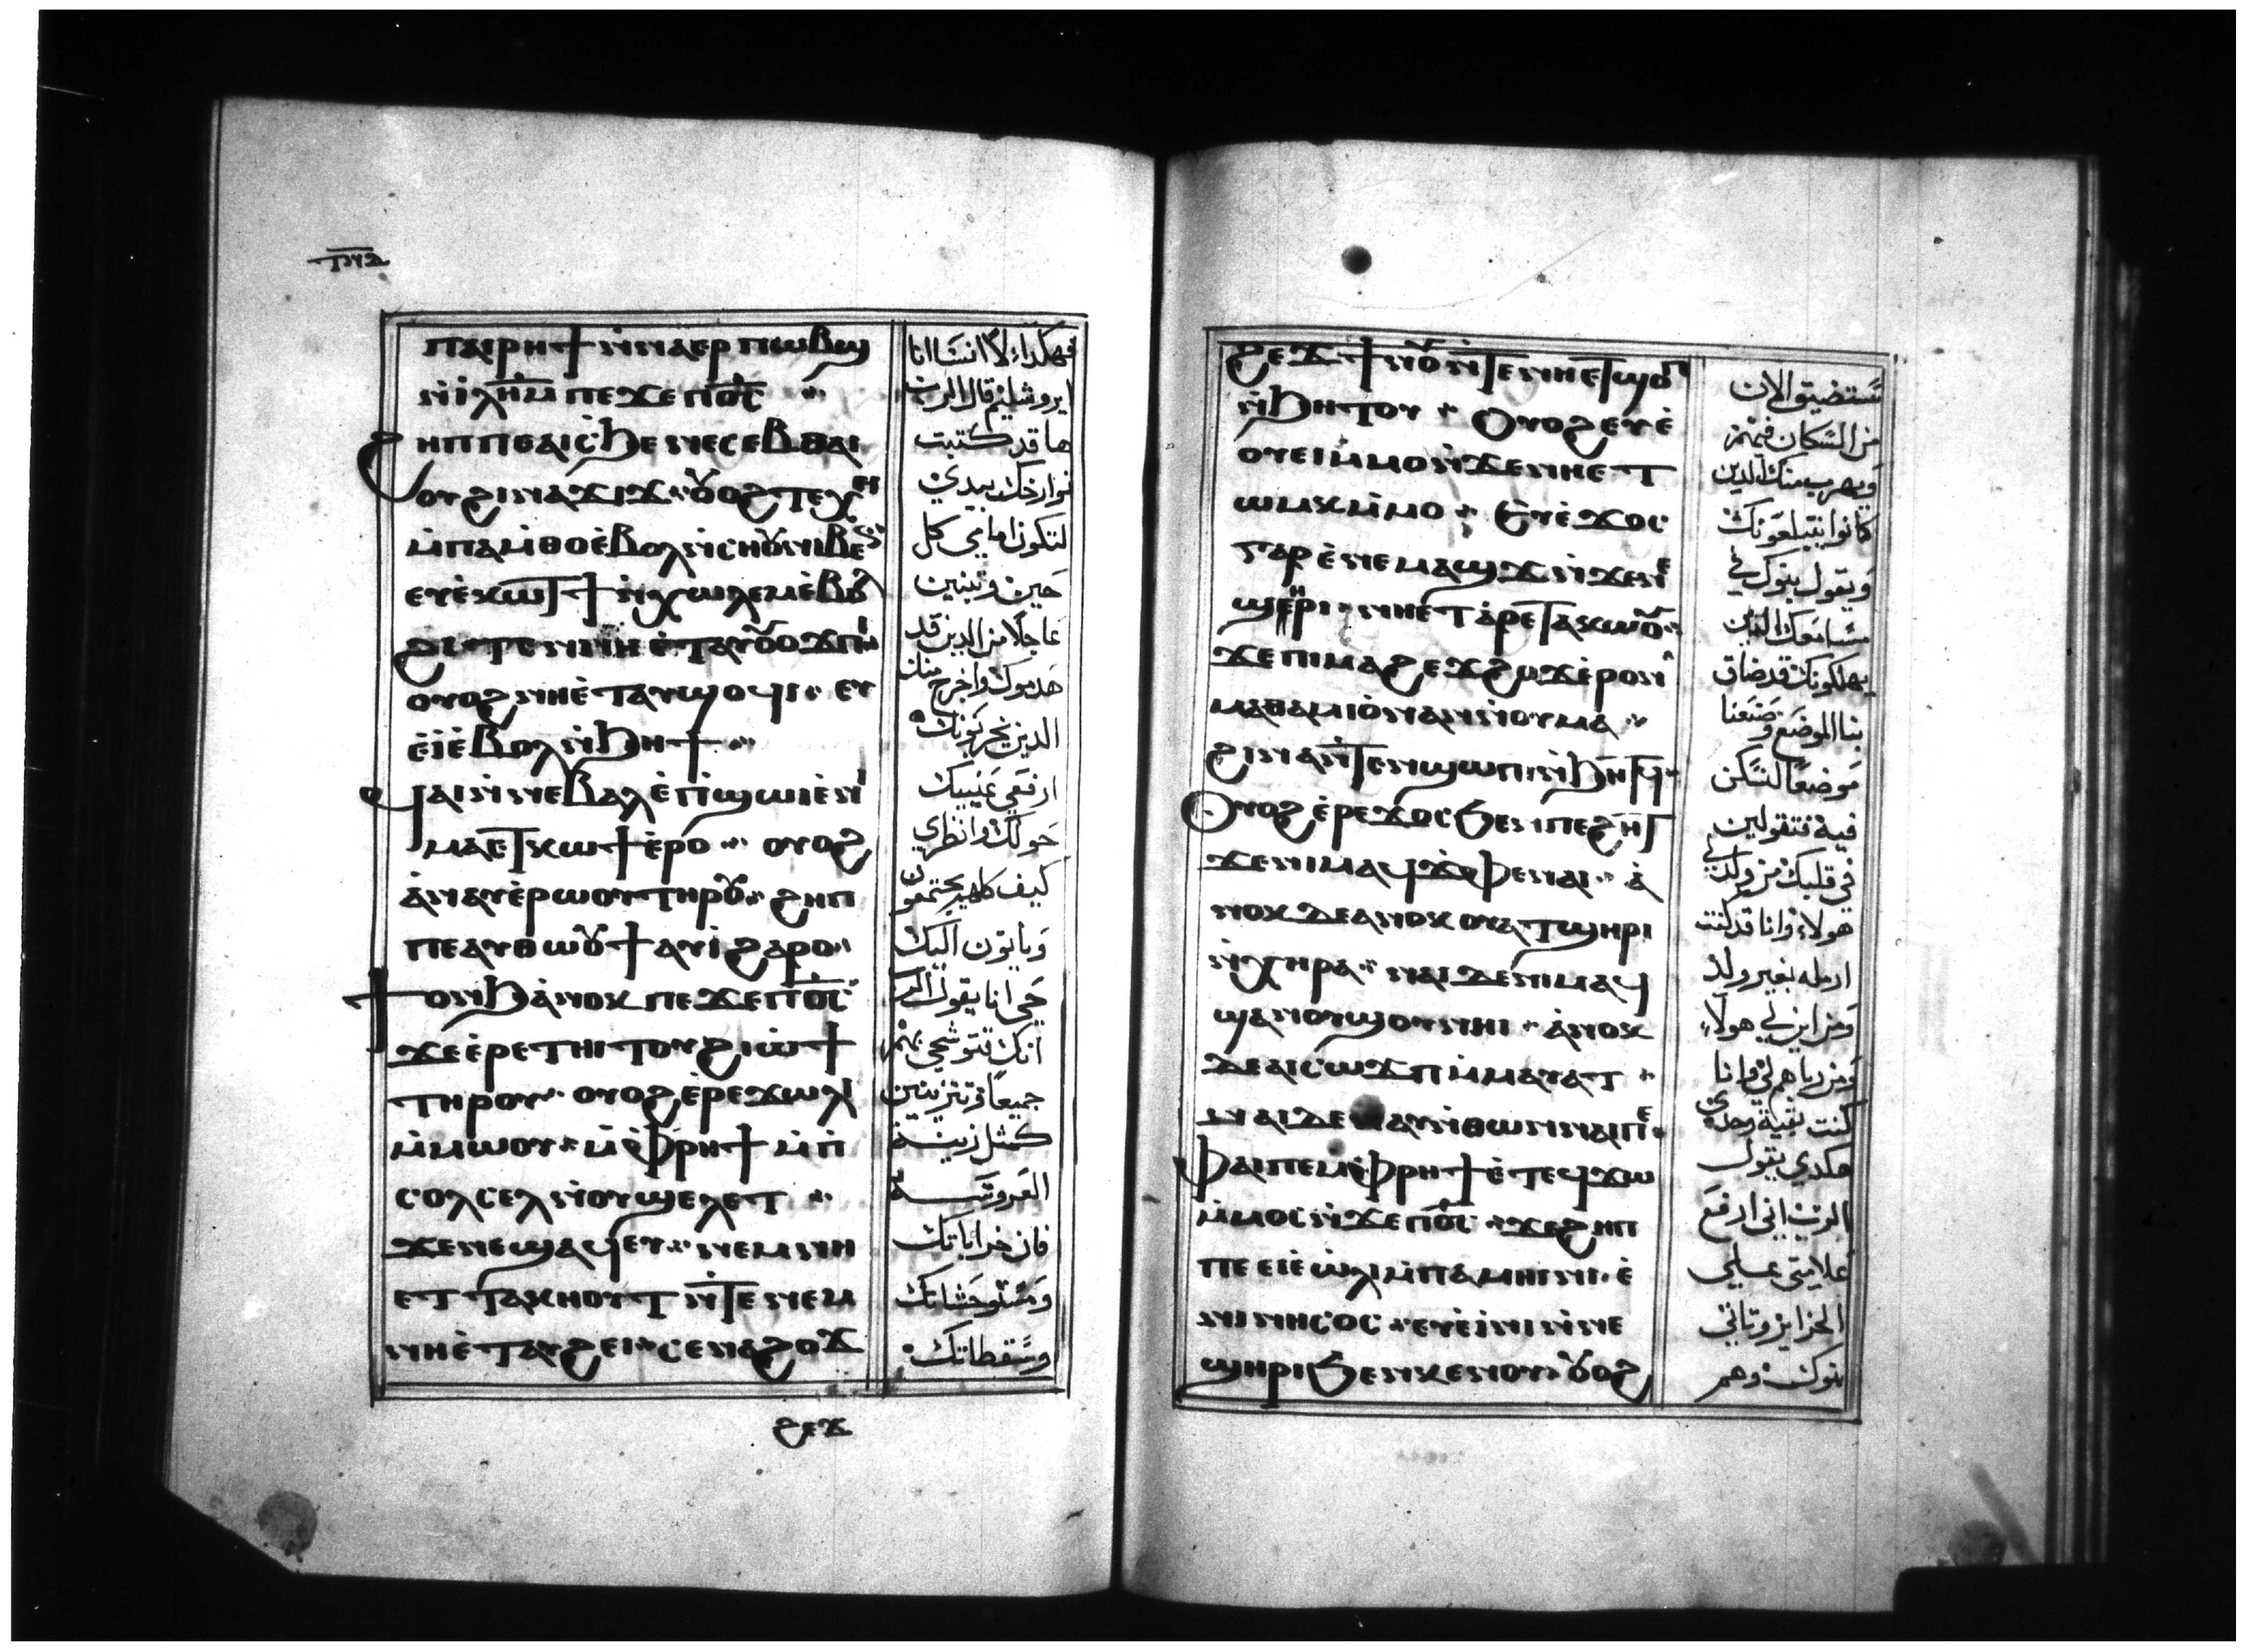 ⲡⲁⲓⲣⲏϯ ⲛ̀ⲛⲁⲉⲣⲡⲱⲃϣ
ⲛ̀ⲓ̀ⲗ̅ⲏ̅ⲙ̅ ⲡⲉϫⲉ ⲡ̅ⲟ̅ⲥ̅
ϩⲏⲡⲡⲉ ⲁⲓⲥϧⲉ ⲛⲉⲥⲉⲃⲑⲁⲓ
ⲟⲩϩⲓ ⲛⲁϫⲓϫ ⲟⲩⲟϩ ⲧⲉⲭⲏ
ⲙ̀ⲡⲁⲙ̀ⲑⲟ ⲉ̀ⲃⲟⲗ ⲛ̀ⲥⲏⲟⲩ ⲛⲓⲃⲉⲛ
ⲉⲩⲉ̀ⲕⲱϯ ⲛ̀ⲭⲱⲗⲉⲙ ⲉ̀ⲃⲟⲗ
ⲟⲩⲟϩ ⲛⲏⲉ̀ⲧⲁⲩϣⲟϥⲓ ⲉⲩ
ⲉ̀ⲓ̀ ⲉ̀ⲃⲟⲗ ⲛ̀ϧⲏϯ
ϥⲁⲓ ⲛ̀ⲛⲉⲃⲁⲗ ⲉ̀ⲡ̀ϣⲱⲓ ⲉ̀ⲛⲓ
ⲙⲁ ⲉⲧⲕⲱϯ ⲉ̀ⲣⲟ ⲟⲩⲟϩ
ⲁ̀ⲛⲁⲩ ⲉ̀ⲣⲱⲟⲩ ⲧⲏⲣⲟⲩ ϩⲏⲡ
ⲡⲉ ⲁⲩⲑⲱⲟⲩϯ ⲁⲩⲓ̀ ϩⲁⲣⲟ
ϯⲟⲛϧ ⲁ̀ⲛⲟⲕ ⲡⲉϫⲉ ⲡ̅ⲟ̅ⲥ̅
ϫⲉ ⲉ̀ⲣⲉⲧⲏⲓⲧⲟⲩ ϩⲓⲱ̀ϯ
ⲧⲏⲣⲟⲩ ⲟⲩⲟϩ ⲉ̀ⲣⲉϫⲱⲗ
ⲙ̀ⲙⲱⲟⲩ ⲙ̀ⲫⲣⲏϯ ⲙ̀ⲡ̀
ⲥⲟⲗⲥⲉⲗ ⲛ̀ⲟⲩϣⲉⲗⲉⲧ
ϫⲉ ⲛⲉϣⲁϥⲉⲩ ⲛⲉⲙ ⲛⲏ
ⲉⲧⲧⲁⲕⲏⲟⲩⲧ ⲛ̀ⲧⲉ ⲛⲉⲙ
ⲛⲏⲉ̀ⲧⲁⲩϩⲉⲓ ⲥⲉⲛⲁϩⲟϫ
ϩⲉϫ
فهكذا لا انسا انا
ايروشليم قال الرب
ها قد كتبت
لتكون امامي كل
حين وتبنين
عاجلا من الذين قد
هدموك واخرج منك
الذين يخربونك
ارفعي عينيك
حولك وانظري
كيف كلهم يجتمعون
وياتون اليك
حي انا يقول الرب
انك تتوشحي بهم
جميعا وتتزينين
كمثل زينة
العروسة
فان خراباتك
ومستوحشاتك
وسقطاتك
ϩⲉϫϯⲛⲟⲩ ⲛ̀ⲧⲉ ⲛⲏ ⲉⲧϣⲟⲡ
ⲛ̀ϧⲏⲧⲟⲩ ⲟⲩⲟϩ ⲉⲩⲉ̀
ⲟⲩⲉⲓ ⲙ̀ⲙⲟ ⲛ̀ϫⲉ ⲛⲏ ⲉⲧ
ⲱⲙⲕ ⲙ̀ⲙⲟ ⲉⲩⲉ̀ϫⲟⲥ
ⲅⲁⲣ ⲉ̀ⲛⲉⲙⲁϣϫ ⲛ̀ϫⲉ ⲛⲉ
ϣⲏⲣⲓ ⲛⲏⲉ̀ⲧⲁⲣⲉⲧⲁⲕⲱⲟⲩ
ϫⲉ ⲡⲓⲙⲁ ϩⲉϫϩⲱϫ ⲉ̀ⲣⲟⲛ
ⲙⲁⲑⲁⲙⲓⲟ̀ ⲛⲁⲛ ⲛ̀ⲟⲩⲙⲁ
ϩⲓⲛⲁ ⲛ̀ⲧⲉⲛϣⲱⲡⲓ ⲛ̀ϧⲏⲧϥ
ⲟⲩⲟϩ ⲉ̀ⲣⲉϫⲟⲥ ϧⲉⲛ ⲡⲉϩⲏⲧ
ϫⲉ ⲛⲓⲙ ⲁϥϫⲫⲉ ⲛⲁⲓ ⲁ̀
ⲛⲟⲕ ⲇⲉ ⲁⲛⲟⲕ ⲟⲩⲁⲧϣⲏⲣⲓ
ⲛ̀ⲭⲏⲣⲁ ⲛⲁⲓ ⲇⲉ ⲛⲓⲙ ⲁϥ
ϣⲁⲛⲟⲩϣⲟⲩ ⲛⲏⲓ ⲁ̀ⲛⲟⲕ
ⲇⲉ ⲁⲓⲥⲱϫⲡ ⲙ̀ⲙⲁⲩⲁⲧ
ⲛⲁⲓ ⲇⲉ ⲛⲁⲩⲛ̀ⲑⲱⲛ ⲛⲁⲓⲡⲉ
ⲫⲁⲓ ⲡⲉ ⲙ̀ⲫⲣⲏϯ ⲉ̀ⲧⲉϥϫⲱ
ⲙ̀ⲙⲟⲥ ⲛ̀ϫⲉ ⲡ̅ⲟ̅ⲥ̅ ϫⲉ ϩⲏⲡ
ⲡⲉ ⲉⲓⲉ̀ⲱ̀ⲗⲓ ⲙ̀ⲡⲁⲙⲏⲓⲛⲓ ⲉ̀
ⲛⲓⲛⲏⲥⲟⲥ ⲉⲩⲉ̀ⲓ̀ⲛⲓ ⲛ̀ⲛⲉ
ϣⲏⲣⲓ ϧⲉⲛ ⲕⲉⲛⲟⲩ ⲟⲩⲟϩ
ستضيق الان
من السكان فيهم
ويهرب منك الذين
كانوا يبتلعونك
ويقول بنوك في
مسامعك الذين
يهلكونك قد ضاق
بنا الموضع وضعنا
موضعا لنسكن
فيه فتقولين
في قلبك من ولد لي
هولاء وانا قد كنت
ارمله بغير ولد
ومن اين لي هولاء
ومن رباهم لي وانا
كنت بقية وحدي
هكدي يقول
الرب اني ارفع
علامتي علي
الجزاير وتاتي
بنوك وهم